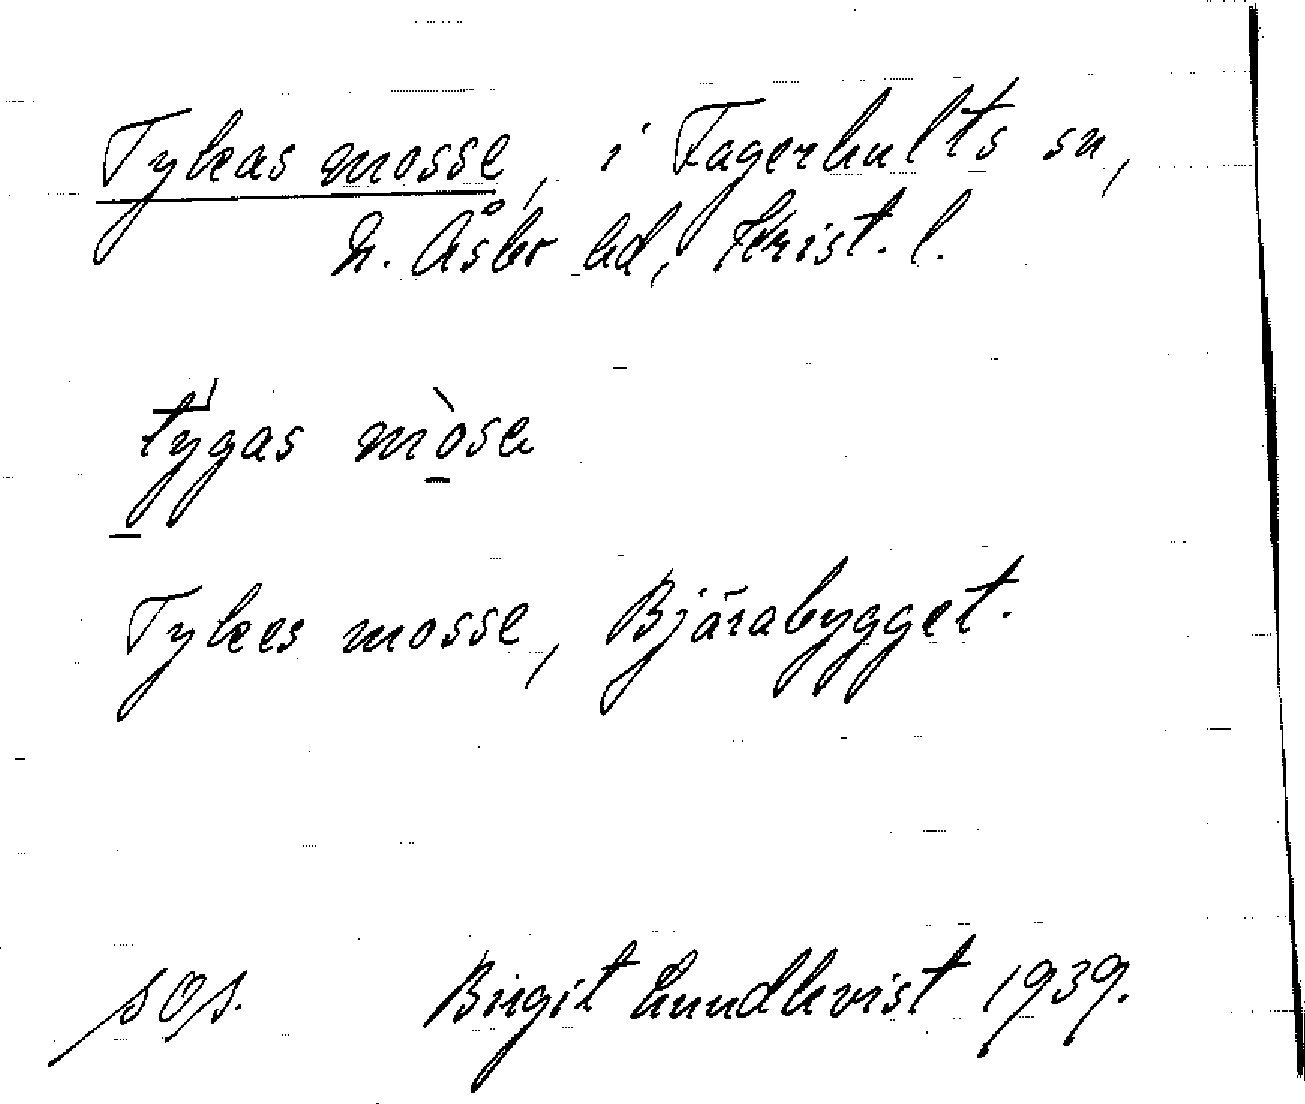 Tykas mosse, i Fagerhults sn,
N. Åsbo hd, Krist. l.
tygas mòse
Tykes mosse, Bjärabygget.
sOs. Birgit Lundkvist 1939.